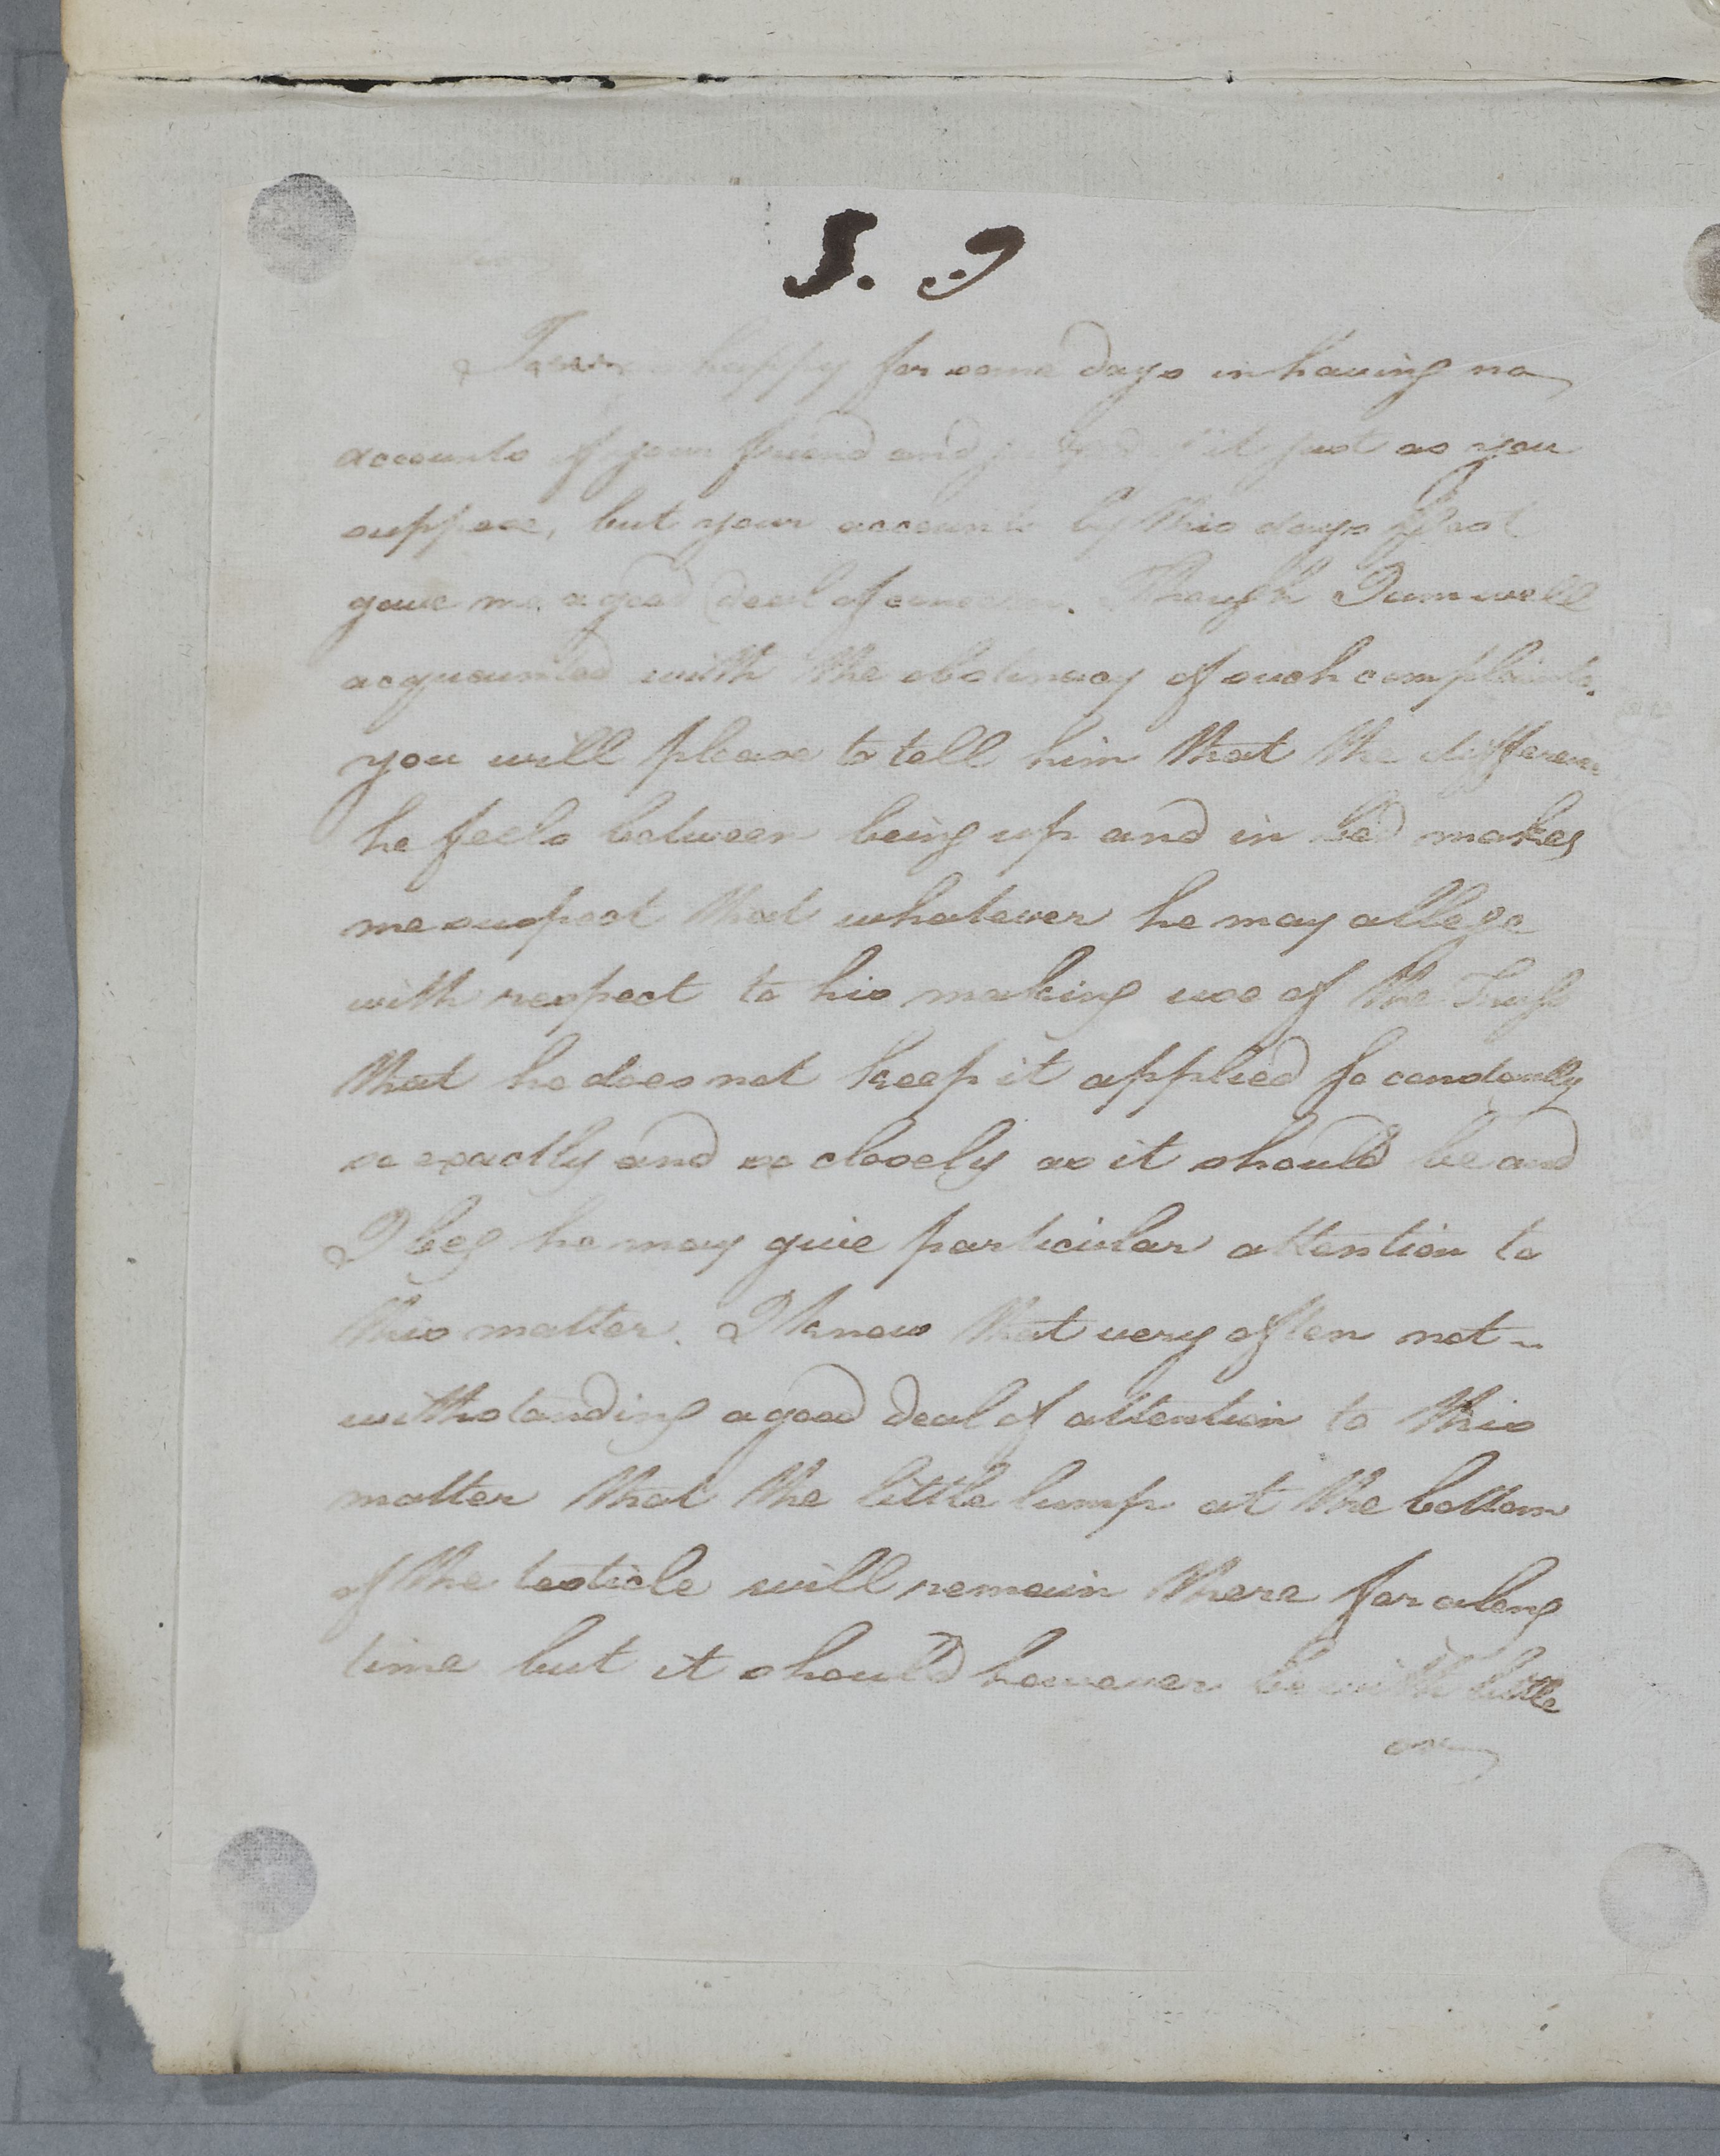 S. :9
I was happy for some days in having no
accounts of your friend and judged of it just as you
suppose, but your accounts by this days Post
gave me a good deal of concern. Though I am well
acquainted with the obstinacy of such complaints.
you will please to tell him that the difference
he feels between being up and in bed makes
me suspect that whatever he may allege
with respect to his making use of the Truss
that he does not keep it applied so constantly
so exactly and so closely as it should be and
I beg he may give particular attention to
this matter. I know that very often not-
withstanding a good deal of attention to this
matter that the little lump at the bottom
of the testicle will remain there for a long
time but it should however be with little